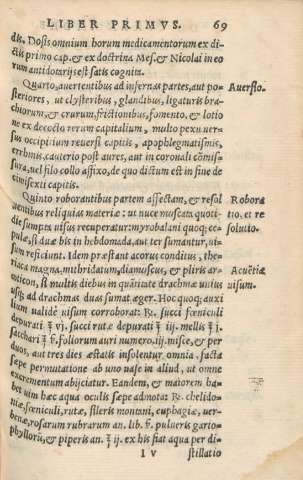 LIBER PRIMVS. 69
dis. Dosis omnium horum medicamentorum ex di-
ctis primo cap. & ex doctrina Mes. & Nicolai in eo
rum antidotarijs est satis cognita.
Quarto, auertentibus ad infernas partes, aut po-
steriores, ut clysteribus, glandibus, ligaturis bra-
chiorum, & crurum, frictionibus, fomento, & lotio
ne ex decocto rerum capitalium, multo pexu uer-
sus occipitium reuersi capitis, apophlegmatismis,
errhinis, cauterio post aures, aut in coronali cõmis-
sura, uel filo collo affixo, de quo dictum est in fine de
capitis.
Auersio.
Quinto roborantibus partem affectam, & resol
uentibus reliquias materiæ: ut nuce muscata quoti-
die sumpta uisus recuperatur: myrobalani quoq; ce-
pulæ, si duæ bis in hebdomada, aut ter sumantur, ui-
sum reficiunt. Idem præstant acorus conditus, the-
riaca magna, mithridatum, diamuscus, & pliris ar-
conticon, si multis diebus in quãtitate drachmæ unius
usq; ad drachmas duas sumat æger. Hoc quoq; auxi
lium ualidè uisum corroborat: ℞. succi fœniculi
depurati ℥ vj. succi rutæ depurati ℥ iij. mellis ℥ j.
sacchari ℥ ß. foliorum auri numero, iij. misce, & per
duos, aut tres dies æstatis insolentur omnia, facta
sæpe permutatione ab uno uase in aliud, ut omne
excrementum abijciatur. Eandem, & maiorem ha-
bet uim hæc aqua oculis sæpe admota: ℞. chelido-
niæ, fœniculi, rutæ, sileris montani, euphagiæ, uer-
benæ, rosarum rubrarum an. lib. ß. pulueris gario-
phyllorũ, & piperis an. ℥ ij. ex his fiat aqua per di-
Robora
tio, et re
solutio.
Acuẽtia
uisum.
I V stillatio